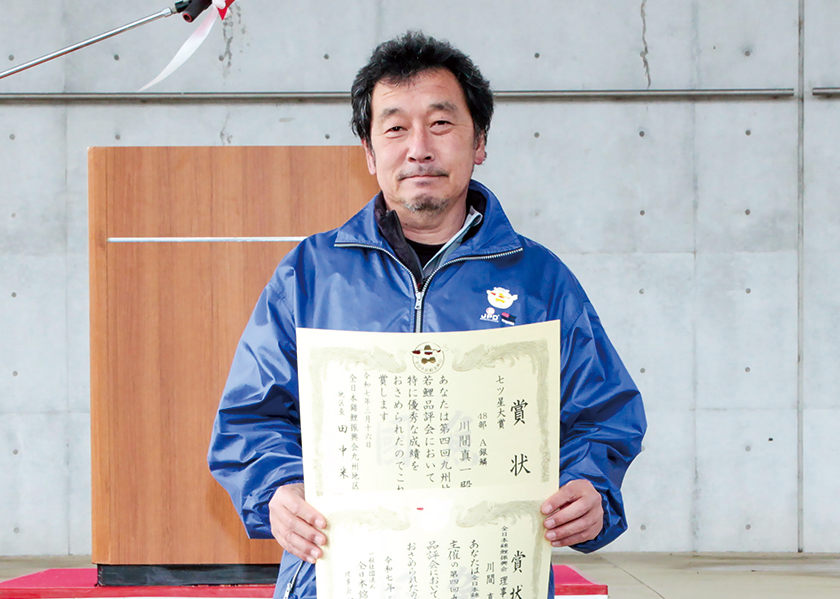 賞状
七ツ星大賞
48部 A銀鱗
川間真一殿
あなたは第四回九州
若鯉品評会において
特に優秀な成績を
おさめられたのでこれ
賞します
令和七年三月十六日
全日本錦鯉振興会九州地区
地区長 田中
賞状
全日本錦鯉振興会 理事
川間
あなたは全日本錦
主催の第
品評会において
おさめられた
令和七年
全日本錦
JPD